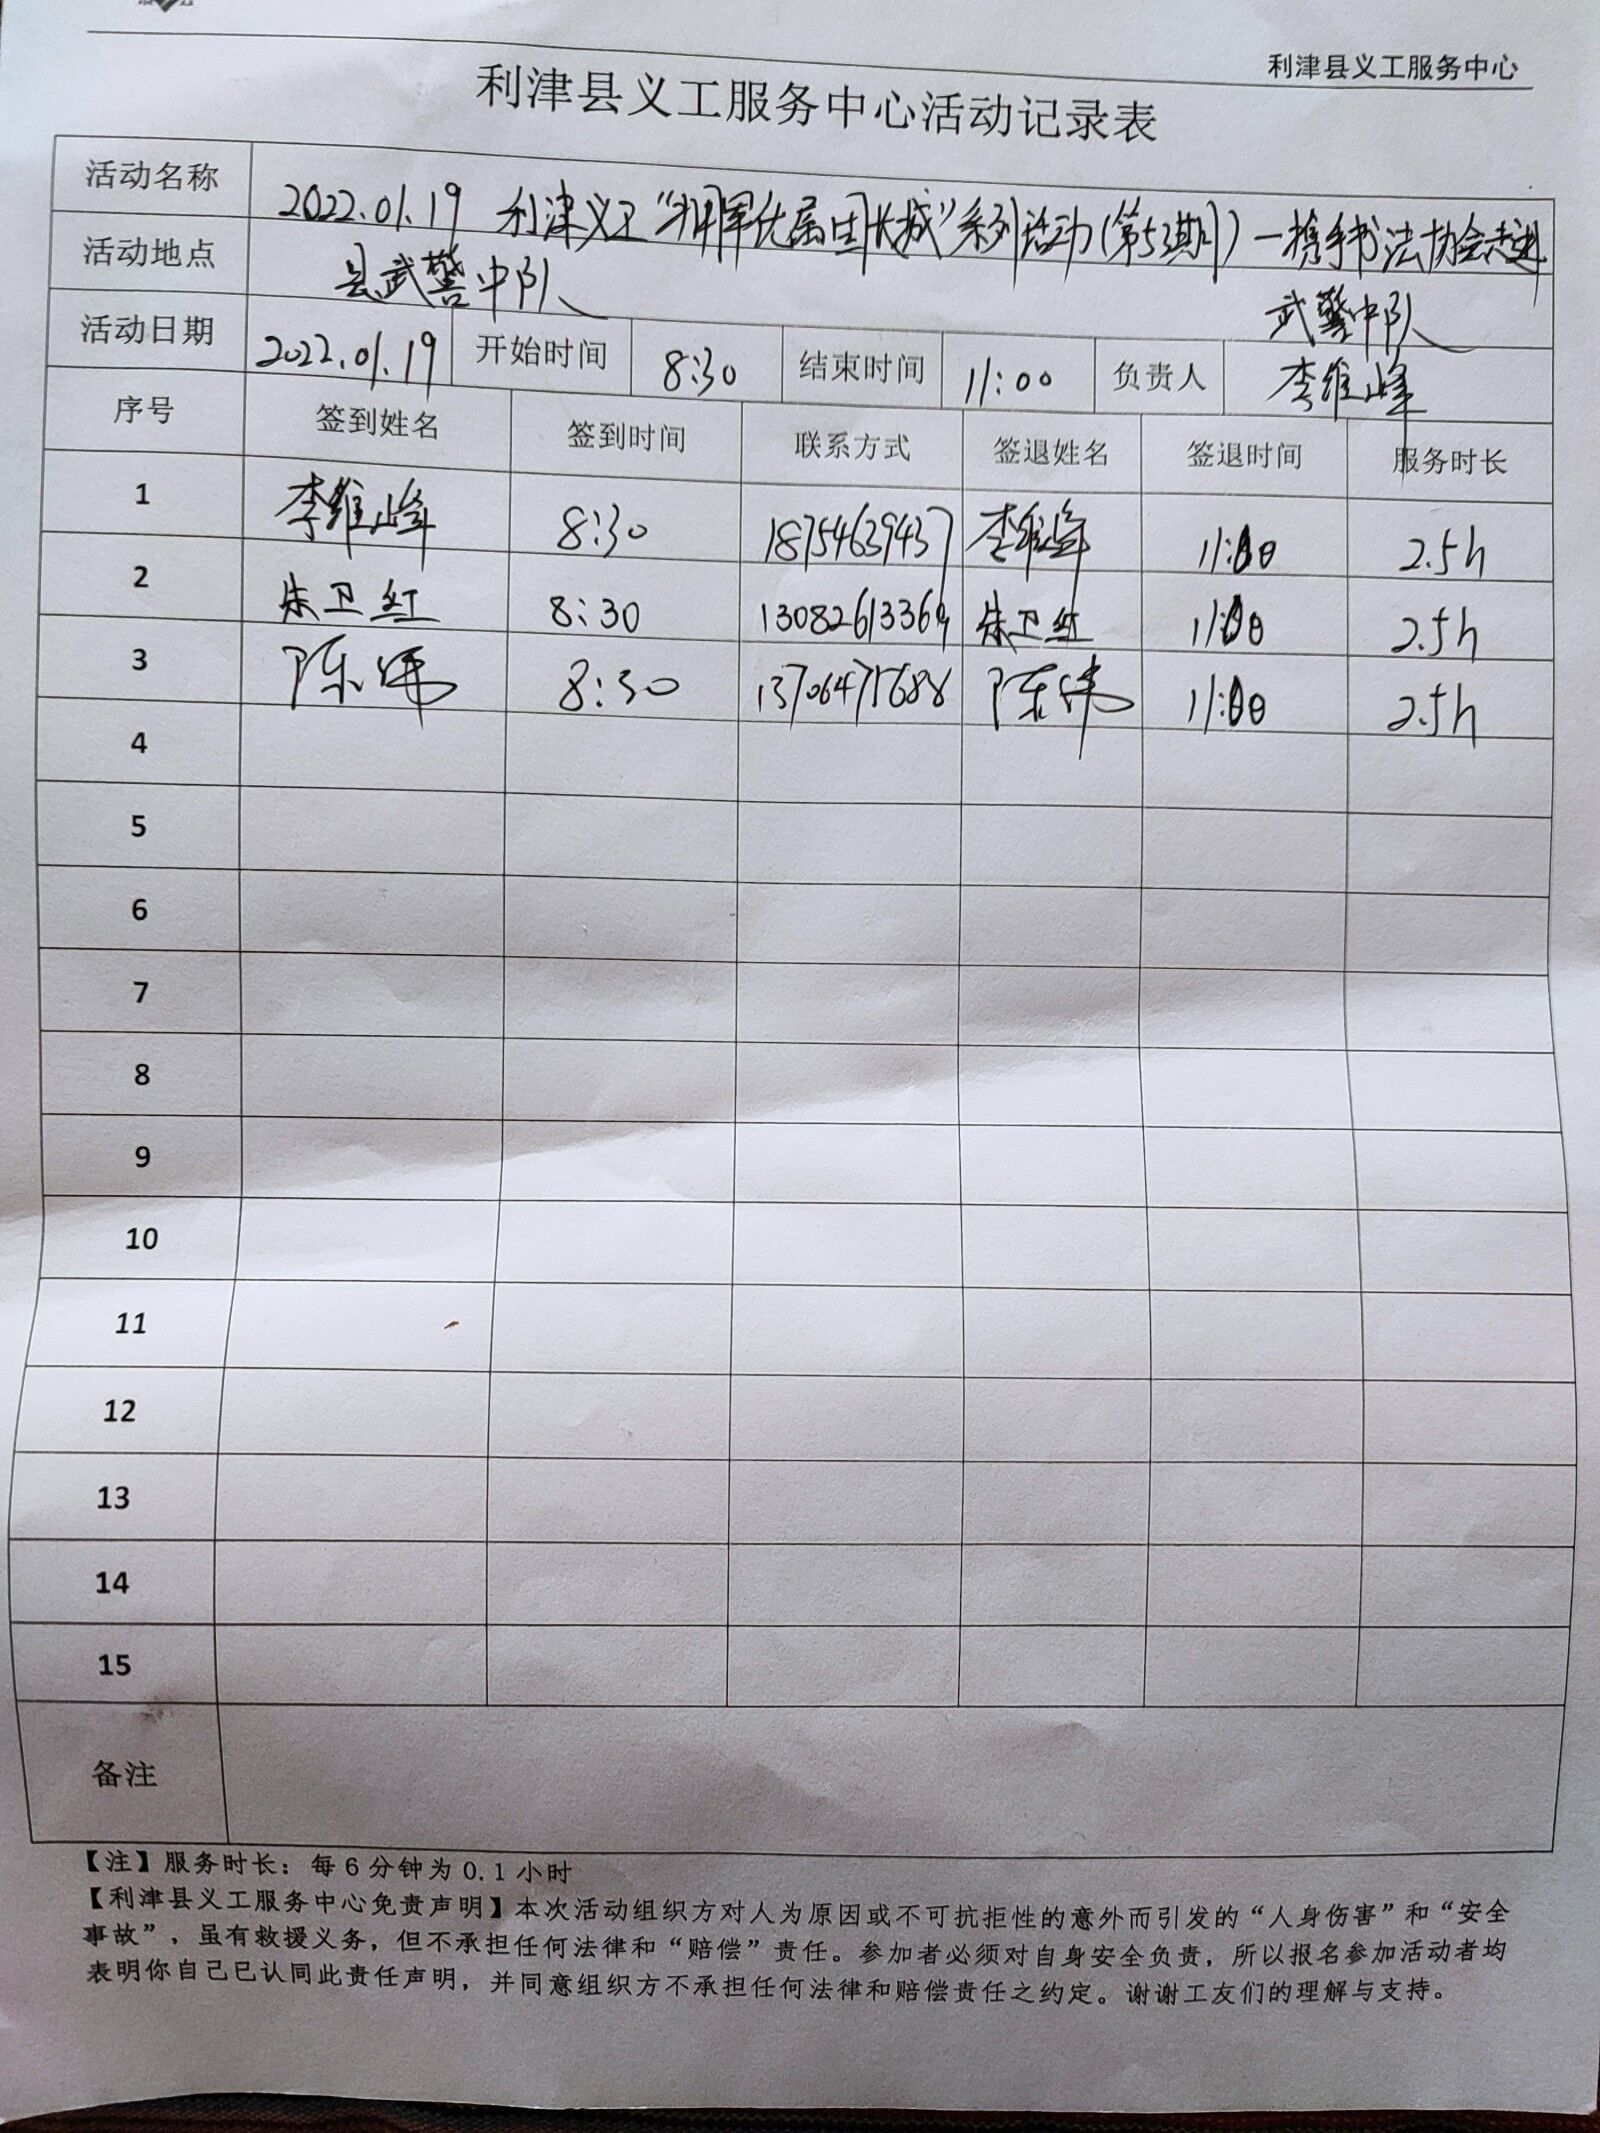 利津县义工服务中心
利津县义工服务中心活动记录表
活动名称 2022.01.19 利津义工“拥军优属固长城”系列活动(第53期)一携手书法协会走进
武警中队
活动地点 县武警中队
活动日期 2022.01.19 开始时间 8:30 结束时间 11:00 负责人 李维峰
序号 签到姓名 签到时间 联系方式 签退姓名 签退时间 服务时长
1 李维峰 8:30 18754639437 李维峰 11:00 2.5h
2 朱卫红 8:30 13082613369 朱卫红 11:00 2.5h
3 陈伟 8:30 陈伟 11:00 2.5h
4
5
6
7
8
9
10
11
12
13
14
15
备注
【注】服务时长：每6分钟为0.1小时
【利津县义工服务中心免责声明】本次活动组织方对人为原因或不可抗拒性的意外而引发的“人身伤害”和“安全
事故”，虽有救援义务，但不承担任何法律和“赔偿”责任。参加者必须对自身安全负责，所以报名参加活动者均
表明你自己已认同此责任声明，并同意组织方不承担任何法律和赔偿责任之约定。谢谢工友们的理解与支持。